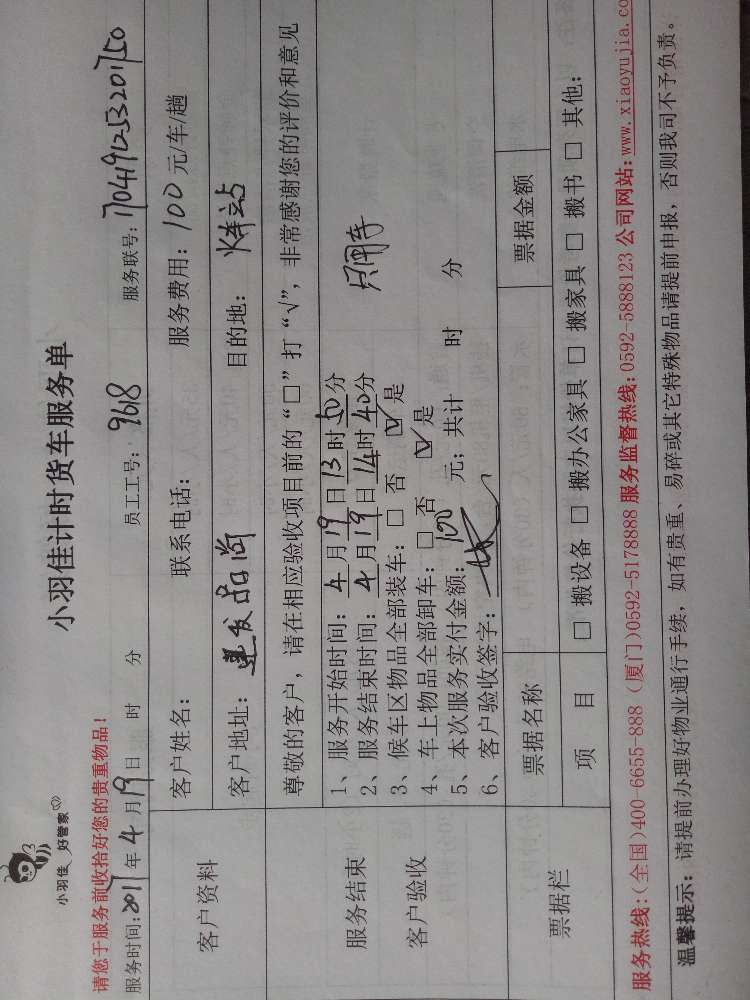 小羽佳 好管家
小羽佳计时货车服务单
请您于服务前收拾好您的贵重物品！
服务时间：2017年4月19日 时 分 员工工号：9618 服务联号：1704191253201750
客户资料
客户姓名： 联系电话： 服务费用：100元/车/趟
客户地址：建发品尚 目的地：火车站
尊敬的客户，请在相应验收项目前的“□”打“√”，非常感谢您的评价和意见
服务结束
客户验收
1、服务开始时间：4月19日13时50分
2、服务结束时间：4月19日14时40分 只用车
3、候车区物品全部装车：□ 否 ☑ 是
4、车上物品全部卸车：□ 否 ☑ 是
5、本次服务实付金额：100元；共计 时 分
6、客户验收签字：
票据栏
票据名称 票据金额
项 目 □ 搬设备 □ 搬办公家具 □ 搬家具 □ 搬书 □ 其他：
服务热线：（全国）400-6655-888（厦门）0592-5178888 服务监督热线：0592-5888123 公司网站：www.xiaoyujia.co
温馨提示：请提前办理好物业通行手续，如有贵重、易碎或其它特殊物品请提前申报，否则我司不予负责。